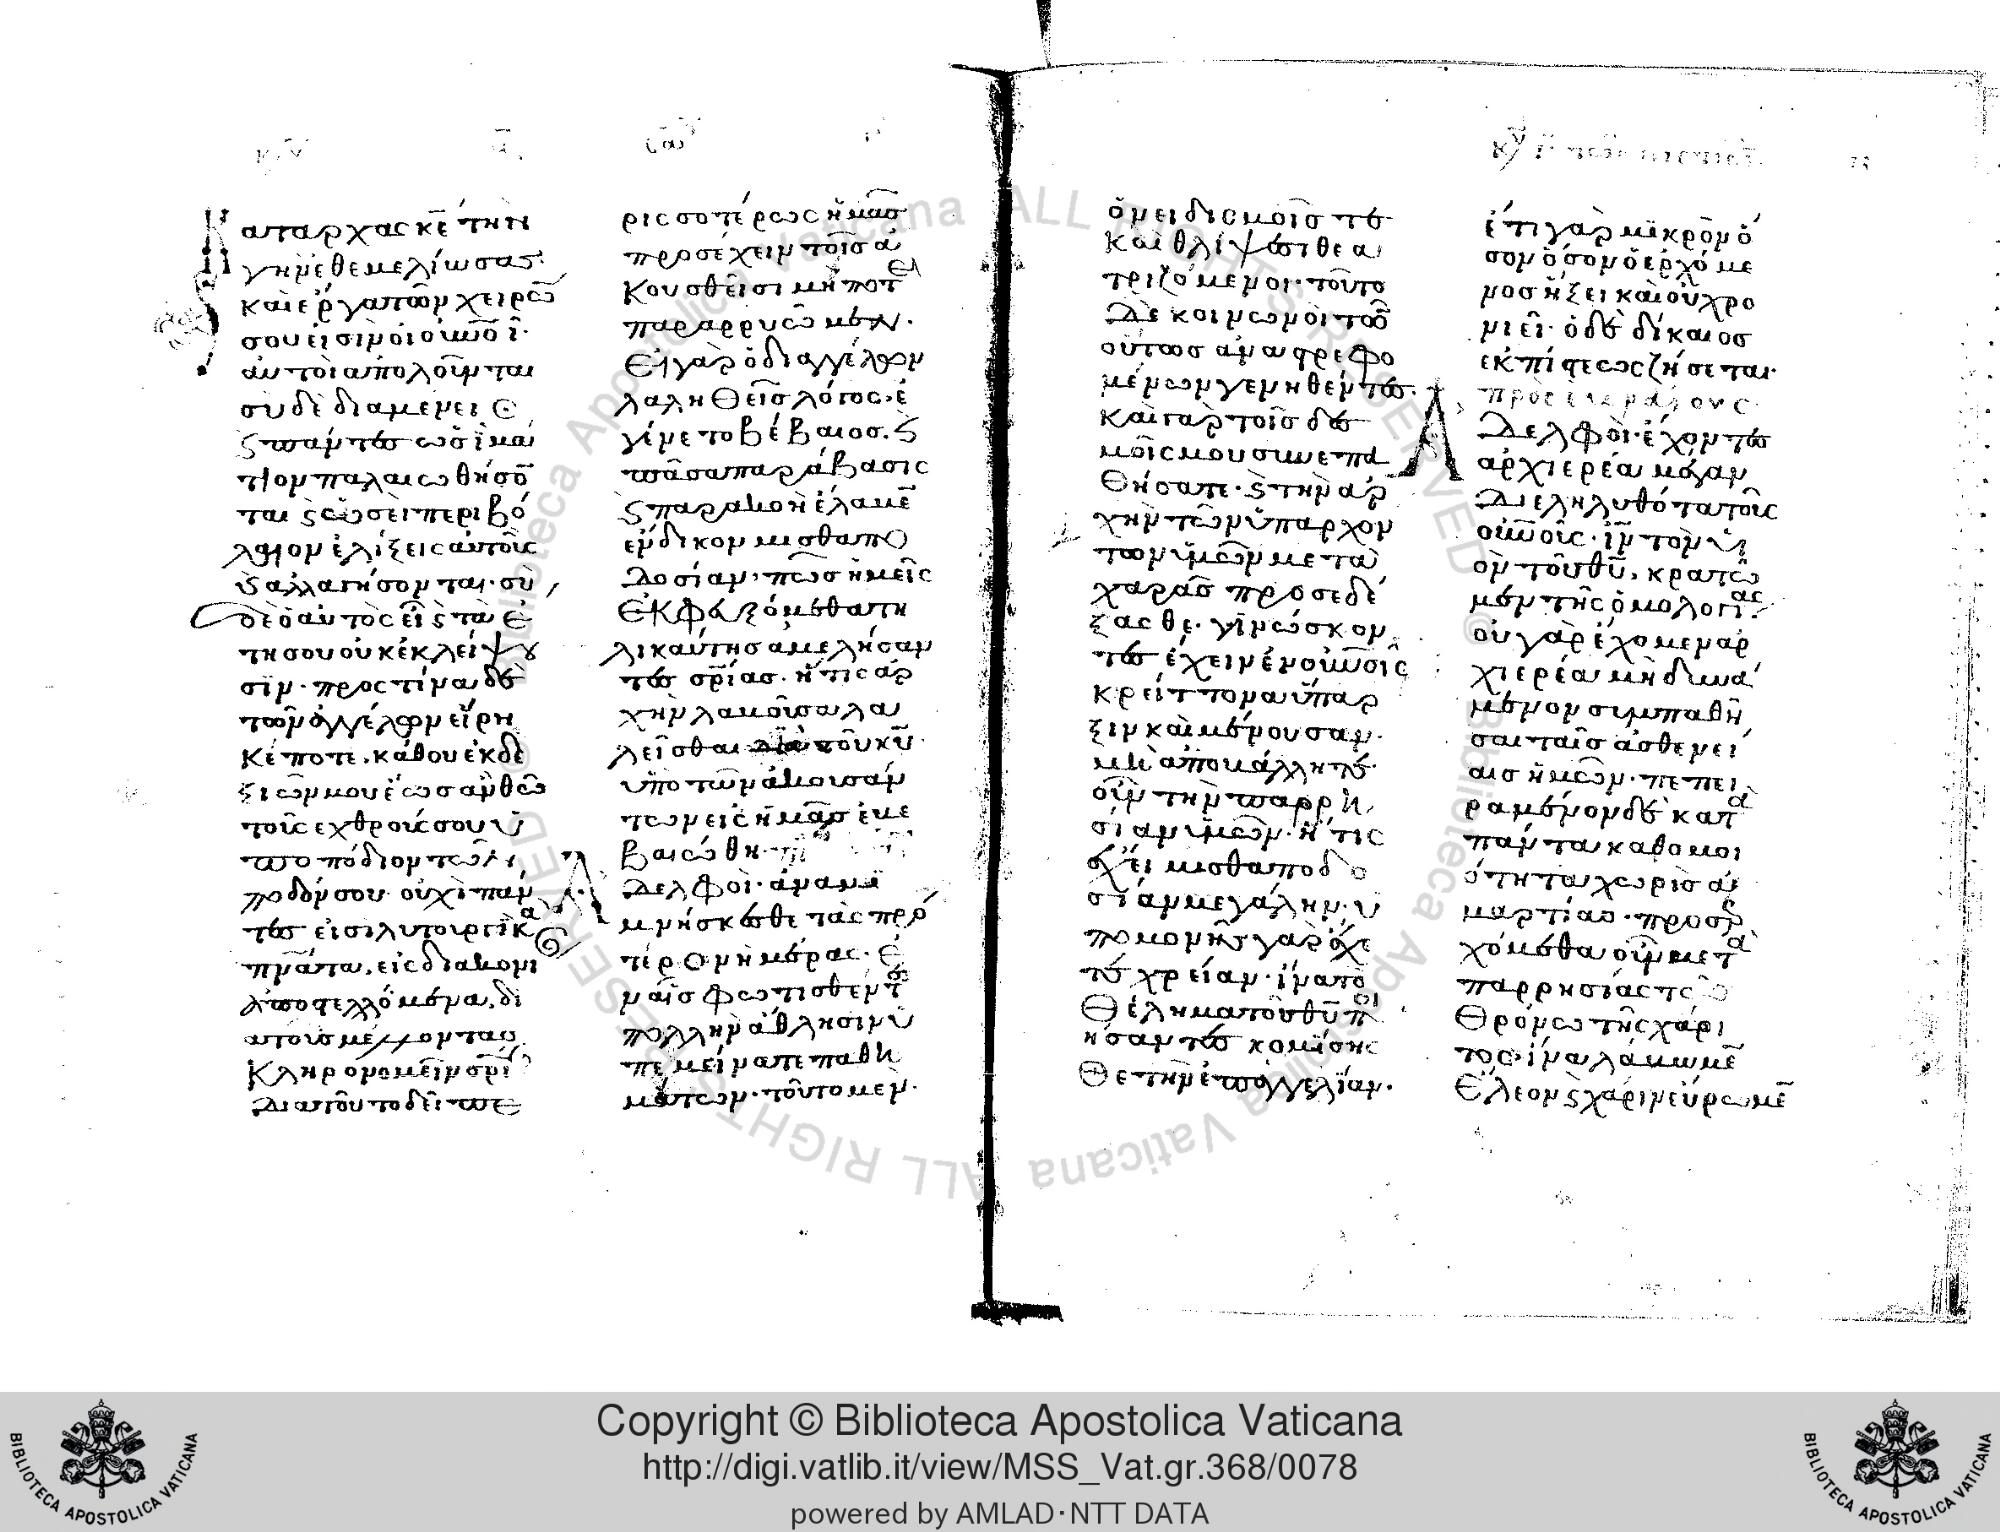 Κατ αρχας κε την
γην εθεμελίωσας
και έργα των χειρῶ
σου εισιν οι ουνοι·
αυτοι απολουνται
συ δε διαμενεις
κ παντες ως ιμα
τιον παλαιωθησο
ται κ ωσει περιβό
λαιον ελίξεις αυτους
κ αλλαγησονται· συ
δε ο αυτος ει κ τα ε
τη σου ουκ εκλείψου
σιν· προς τίνα δε
των αγγέλων είρη
κέ ποτε· κάθου εκ δε
ξιων μου έως αν θω
τους εχθρους σου υ
ποπόδιον των
ποδων σου· ουχι παν
τες εισι λιτουργικα
πνατα, εις διακονι
αποστελλόμενα, δι
α τους μέλλοντας
κληρονομειν σριαν
Δια τουτο δει πε
ρισσοτέρως ημας
προσέχειν τοις α
κουσθεισι μηποτε
παραρρυωμεν·
Ει γαρ ο δι αγγέλων
λαληθεις λόγος· ε
γένετο βέβαιος· κ
πασα παράβασις
κ παρακοη έλαβε
ένδικον μισθαπο
δοσίαν· πως ημεις
εκφευξόμεθα τη
λικαύτης αμελήσαν
τες σριας· ήτις αρ
χην λαβουσα λα
λεισθαι δια του κυ
υπο των ακουσάν
των εις ημας εβε
βαιώθη·
Αδελφοι· αναμι
μνήσκεσθε τας προ
τερον ημέρας· ε
ν αις φωτισθέντες
πολλην άθλησιν υ
πεμείνατε παθη
μάτων· τουτο μεν
ονειδισμοις τε
και θλίψεσι θεα
τριζόμενοι· τουτο
δε κοινωνοι των
ούτως αναστρεφο
μένων γενηθέντες·
και γαρ τοις δε
σμοις μου συνεπα
θήσατε· κ την αρ
χην των υπαρχον
των υμων μετα
χαρας προσεδέ
ξασθε· γινώσκον
τες έχειν εν ουνοις
κρείττονα ύπαρ
ξιν και μένουσαν·
μη αποβάλλητε
ουν την παρρη
σίαν υμων· ή τις
έχει μισθαποδο
σίαν μεγάλην· υ
πομονης γαρ έχε
τε χρείαν· ίνα το
θέλημα του θυ ποι
ησαντες κομίση
σθε την επαγγελίαν·
έτι γαρ μικρον ό
σον όσον ο ερχόμε
νος ήξει και ου χρο
νιει· ο δε δίκαιος
εκ πίστεως ζήσεται·
προς εβραίους
Αδελφοι· έχοντες
αρχιερέα μέγαν
διεληλυθότα τους
ουνους· ιν τον υι
ον του θυ, κρατω
μεν της ομολογιας·
ου γαρ έχομεν αρ
χιερέα μη δυνά
μενον συμπαθη
σαι ταις ασθενεί
αις ημων· πεπει
ραμένον δε κατα
πάντα καθ ομοι
ότητα χωρις α
μαρτίας· προσερ
χόμεθα ουν μετα
παρρησίας τω
θρόνω της χάρι
τος· ίνα λάβωμε
έλεον κ χάριν εύρωμε
Copyright © Biblioteca Apostolica Vaticana
http://digi.vatlib.it/view/MSS_Vat.gr.368/0078
powered by AMLAD·NTT DATA
BIBLIOTECA APOSTOLICA VATICANA
BIBLIOTECA APOSTOLICA VATICANA